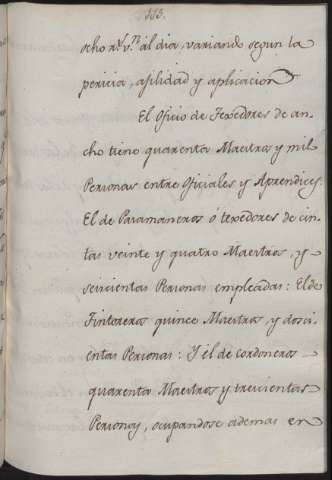 113.
ocho r.ˢ v.ⁿ al dia, variando segun la
pericia, agilidad y aplicacion
El Oficio de Texedores de an-
cho tiene quarenta Maestros y mil
Personas entre Oficiales y Aprendices.
El de Pasamaneros ó texedores de cin-
tas veinte y quatro Maestros, y
seiscientas Personas empleadas: El de
Tintoreros quince Maestros, y dosci-
entas Personas: Y él de Cordoneros
quarenta Maestros y trescientas
Personas, ocupandose ademas en